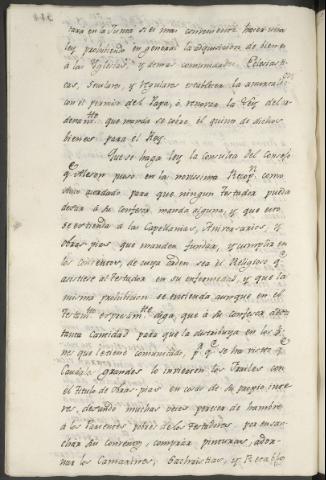 tara en la Junta si es mas conveniente hacer una
ley prohibiendo en general la adquisicion de bienes
á las Yglesias, y demas comunidades Eclesias-
ticas, Seculares, y Regulares establecer la amortiza.on
con el permiso del Papa, ó renovar la Ley del
que manda se cobre el quinto de dichos
bienes para el Rey.
Que se haga ley la Consulta del Consejo
q.e puso en la novissima Recop.n como
Auto acordado para que ningun Testador pueda
dexar á su Confesor manda alguna, y que esto
se estienda á las Capellanias, Aniversarios, y
obras pias que manden fundar, y cumplir en
los conventos, de cuya orden sea el Religioso q.e
asistiere al Testador en su enfermedad, y que la
misma prohibicion se entienda aunque en el
Testam.to expresam.te diga, que á su Confesor dexa
tanta Cantidad para que la distribuya en los
nes que le tiene comunicado, p.r q.e se ha visto q.e
Caudales grandes los invierten los Frailes con
el titulo de Obras pias en cosas de su propio inte-
res, dexando muchas veces perecer de hambre
á los Parientes pobres de los Testadores, por ensan-
char sus Conventos, comprar pinturas, ador-
nar los Camarines, Sachristias, y Retablos